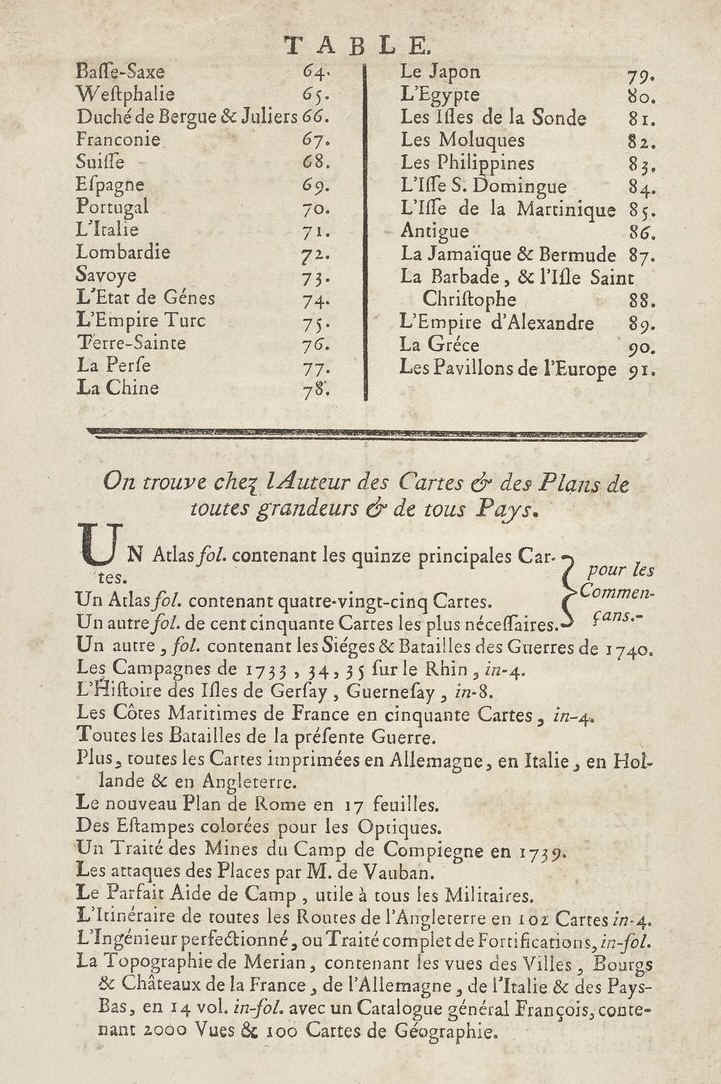 TABLE.
Baſſe-Saxe 64.
Weſtphalie 65.
Duché de Bergue & Juliers 66.
Franconie 67.
Suiſſe 68.
Eſpagne 69.
Portugal 70.
L'Italie 71.
Lombardie 72.
Savoye 73.
L'Etat de Génes 74.
L'Empire Turc 75.
Terre-Sainte 76.
La Perſe 77.
La Chine 78.
Le Japon 79.
L'Egypte 80.
Les Iſles de la Sonde 81.
Les Moluques 82.
Les Philippines 83.
L'Iſſe S. Domingue 84.
L'Iſſe de la Martinique 85.
Antigue 86.
La Jamaïque & Bermude 87.
La Barbade, & l'Iſle Saint
Chriſtophe 88.
L'Empire d'Alexandre 89.
La Gréce 90.
Les Pavillons de l'Europe 91.
On trouve chez lAuteur des Cartes & des Plans de
toutes grandeurs & de tous Pays.
UN Atlas fol. contenant les quinze principales Car-
tes.
Un Atlas fol. contenant quatre-vingt-cinq Cartes.
Un autre fol. de cent cinquante Cartes les plus néceſſaires.
pour les
Commen-
çans.-
Un autre, fol. contenant les Siéges & Batailles des Guerres de 1740.
Les Campagnes de 1733, 34, 35 ſur le Rhin, in-4.
L'Hiſtoire des Iſles de Gerſay, Guerneſay, in-8.
Les Côtes Maritimes de France en cinquante Cartes, in-4.
Toutes les Batailles de la préſente Guerre.
Plus, toutes les Cartes imprimées en Allemagne, en Italie, en Hol-
lande & en Angleterre.
Le nouveau Plan de Rome en 17 feuilles.
Des Eſtampes colorées pour les Optiques.
Un Traité des Mines du Camp de Compiegne en 1739.
Les attaques des Places par M. de Vauban.
Le Parfait Aide de Camp, utile à tous les Militaires.
L'Itinéraire de toutes les Routes de l'Angleterre en 102 Cartes in-4.
L'Ingénieur perfectionné, ou Traité complet de Fortifications, in-fol.
La Topographie de Merian, contenant les vues des Villes, Bourgs
& Châteaux de la France, de l'Allemagne, de l'Italie & des Pays-
Bas, en 14 vol. in-fol. avec un Catalogue général François, conte-
nant 2000 Vues & 100 Cartes de Géographie.